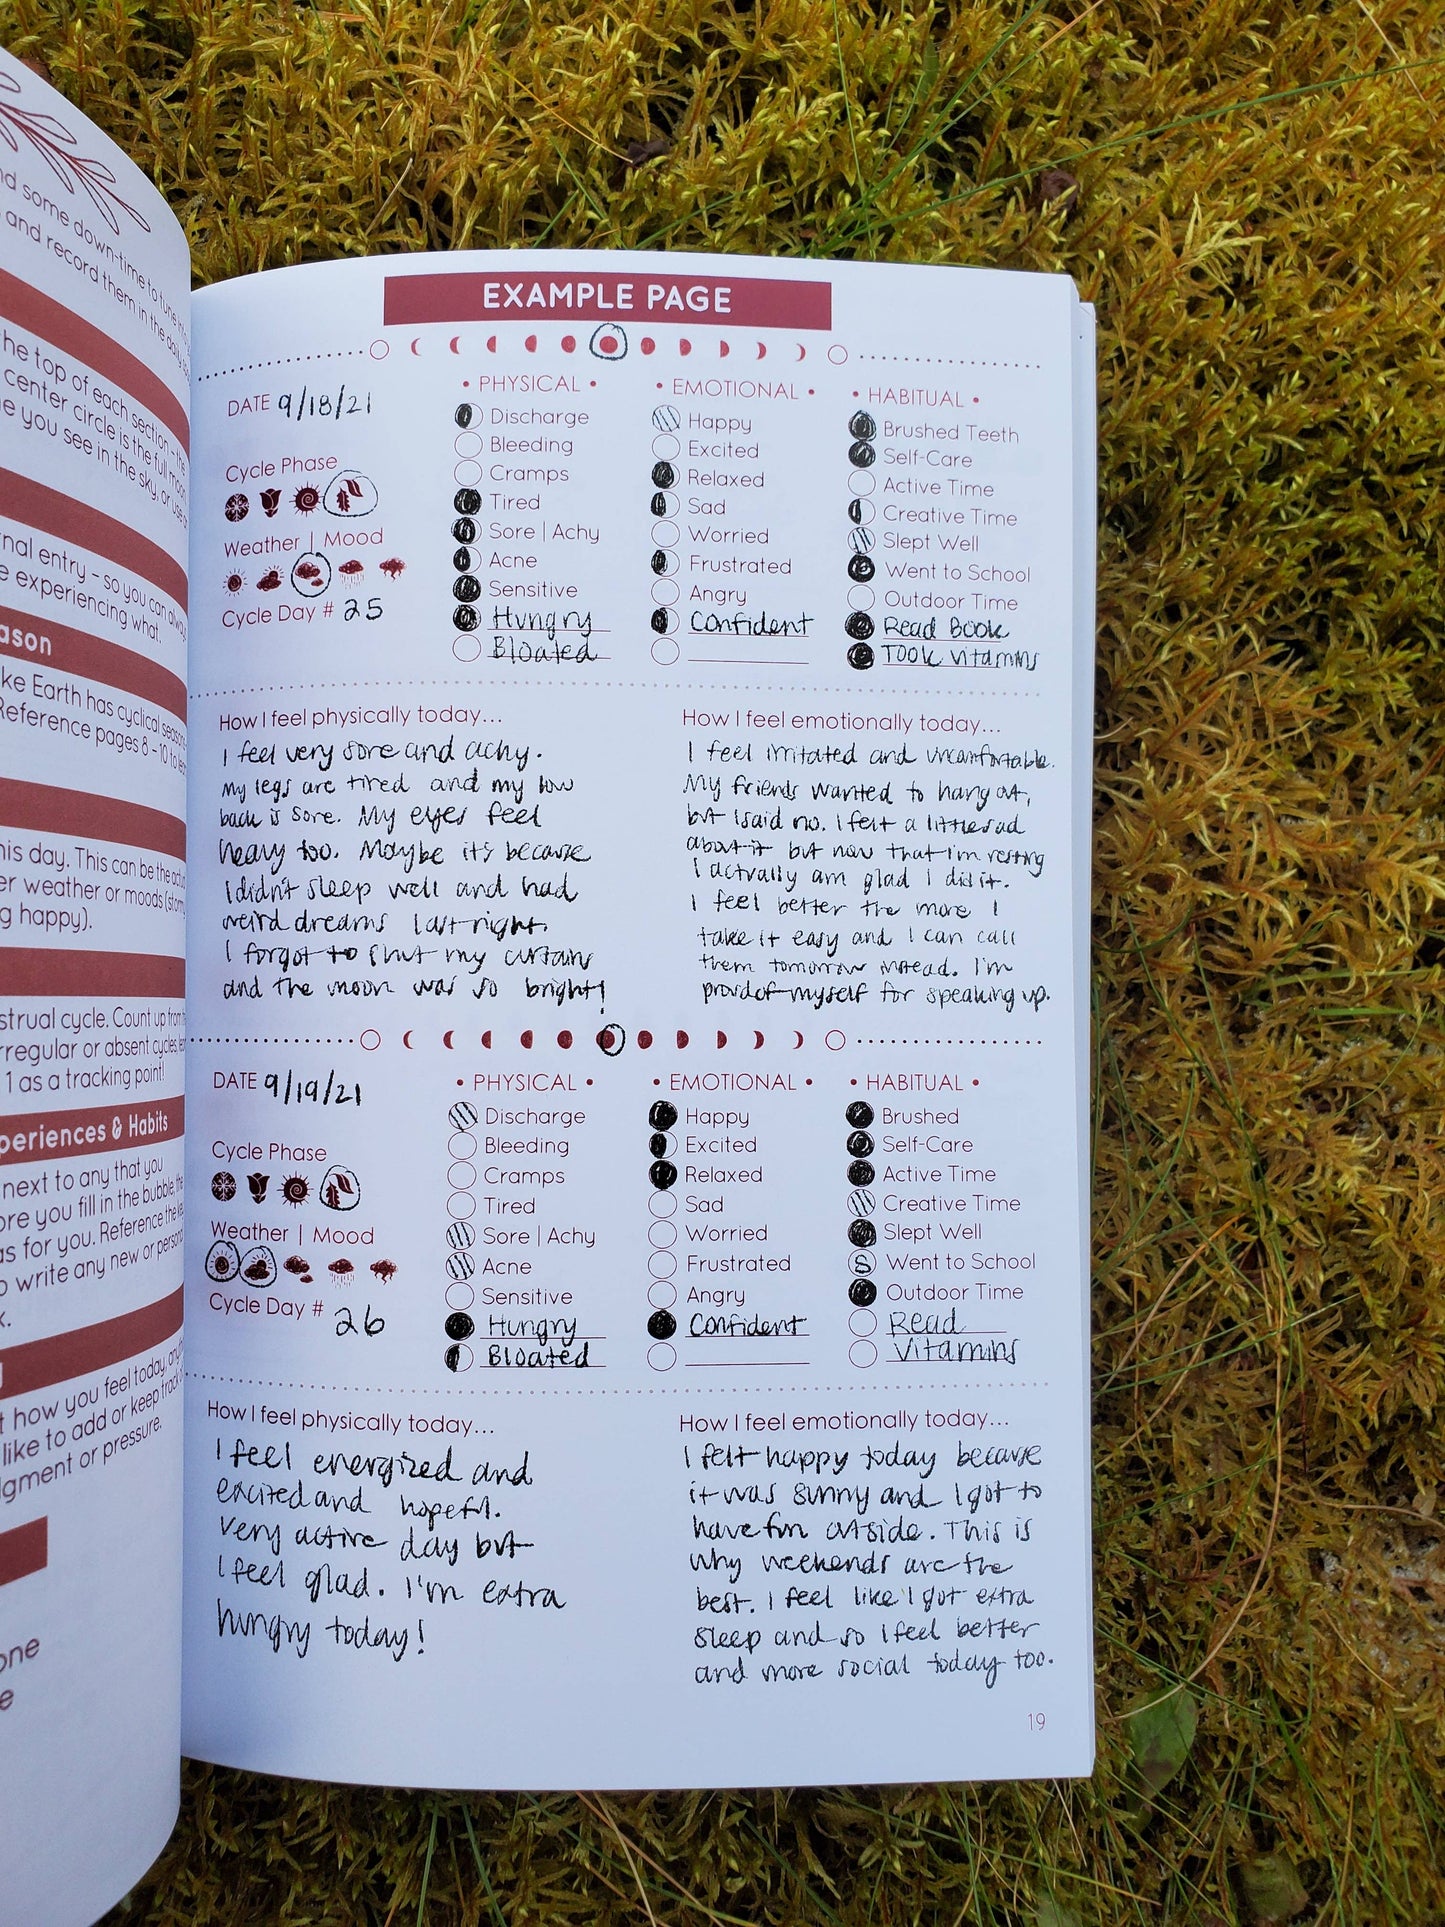 nd some down-time to tune in
and record them in the daily
he top of each section - the
center circle is the full moon
e you see in the sky, or use
rnal entry - so you can always
e experiencing what.
ason
ke Earth has cyclical seasons
Reference pages 8 - 10 to
his day. This can be the
er weather or moods (stormy
g happy).
strual cycle. Count up from
rregular or absent cycles,
1 as a tracking point!
periences & Habits
next to any that you
ore you fill in the bubble, the
as for you. Reference the
o write any new or
k.
t how you feel today,
like to add or keep track
dgment or pressure.
one
e
EXAMPLE PAGE
DATE 9/18/21
Cycle Phase
Weather | Mood
Cycle Day # 25
• PHYSICAL •
Discharge
Bleeding
Cramps
Tired
Sore | Achy
Acne
Sensitive
Hungry
Bloated
• EMOTIONAL •
Happy
Excited
Relaxed
Sad
Worried
Frustrated
Angry
Confident
• HABITUAL •
Brushed Teeth
Self-Care
Active Time
Creative Time
Slept Well
Went to School
Outdoor Time
Read Book
Took vitamins
How I feel physically today...
I feel very sore and achy.
My legs are tired and my low
back is sore. My eyes feel
heavy too. Maybe it's because
I didn't sleep well and had
weird dreams last night.
I forgot to shut my curtains
and the moon was so bright!
How I feel emotionally today...
I feel irritated and uncomfortable.
My friends wanted to hang out,
but I said no. I felt a little sad
about it but now that I'm resting
I actually am glad I did it.
I feel better the more I
take it easy and I can call
them tomorrow instead. I'm
proud of myself for speaking up.
DATE 9/19/21
Cycle Phase
Weather | Mood
Cycle Day # 26
• PHYSICAL •
Discharge
Bleeding
Cramps
Tired
Sore | Achy
Acne
Sensitive
Hungry
Bloated
• EMOTIONAL •
Happy
Excited
Relaxed
Sad
Worried
Frustrated
Angry
Confident
• HABITUAL •
Brushed
Self-Care
Active Time
Creative Time
Slept Well
S Went to School
Outdoor Time
Read
Vitamins
How I feel physically today...
I feel energized and
excited and hopeful.
Very active day but
I feel glad. I'm extra
hungry today!
How I feel emotionally today...
I felt happy today because
it was sunny and I got to
have fun outside. This is
why weekends are the
best. I feel like I got extra
sleep and so I feel better
and more social today too.
19